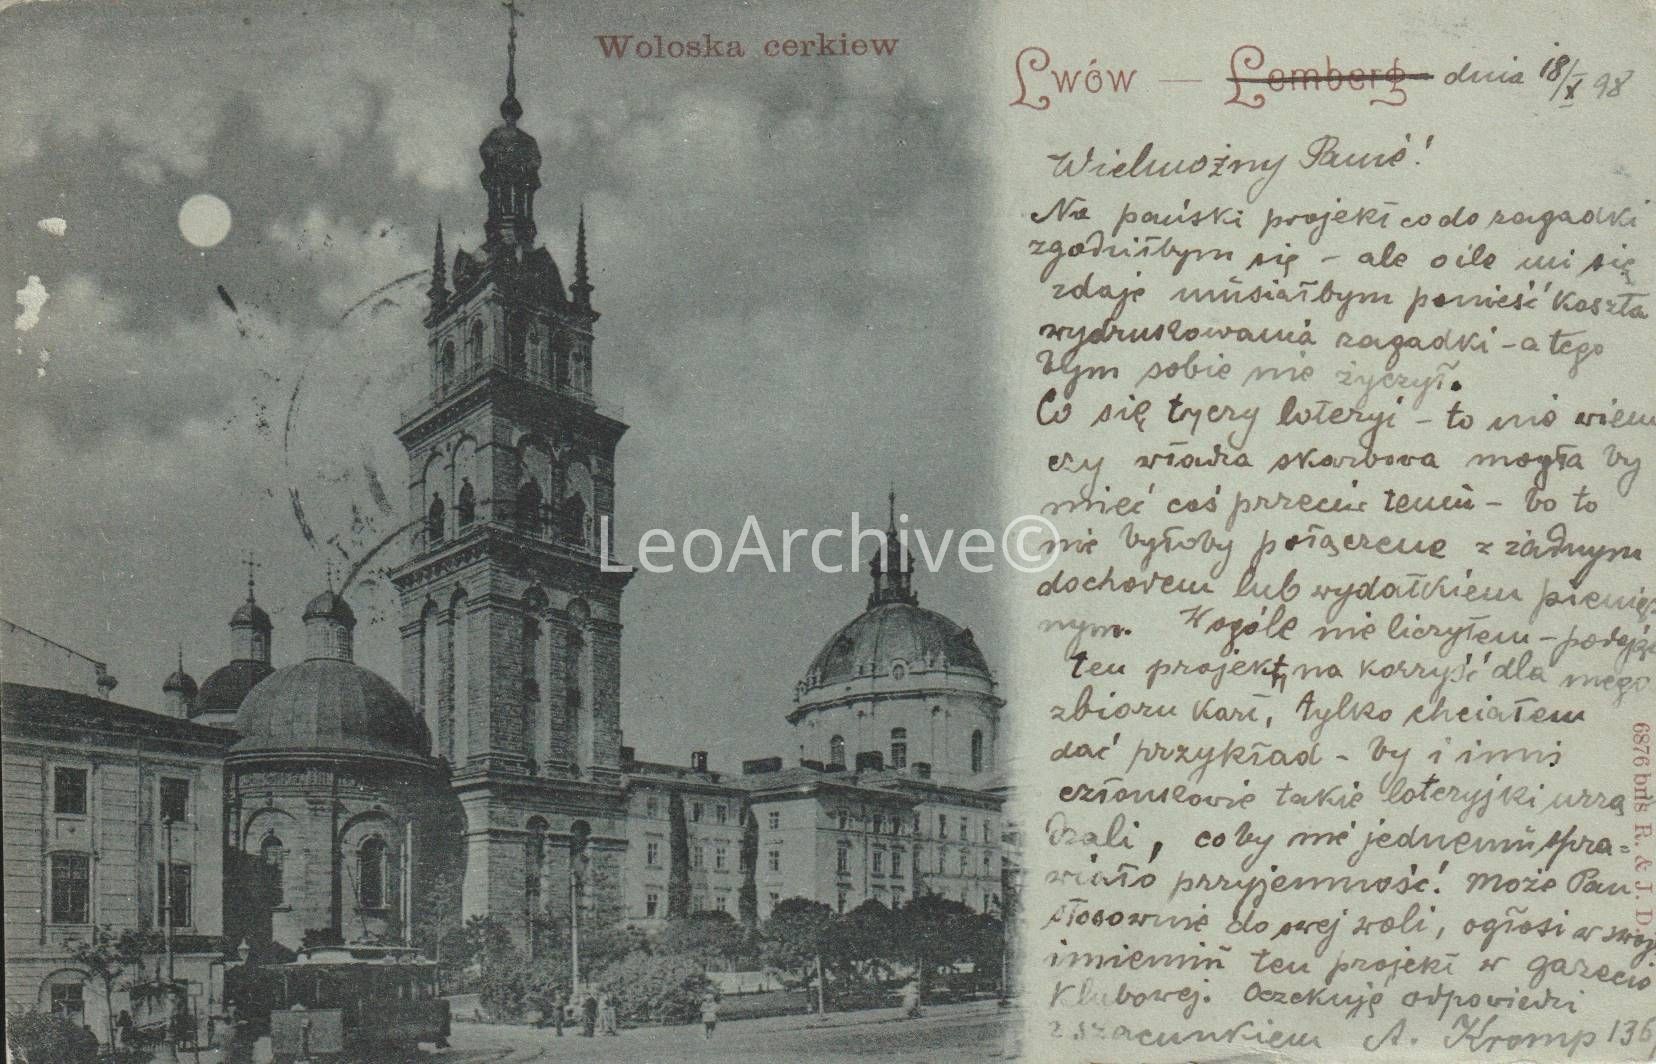 Woloska cerkiew
Lwów — Lemberg dnia 18/X 98
Wielmożny Panie!
Na pański projekt co do zagadki
zgodziłbym się – ale o ile mi się
zdaje musiałbym ponieść koszta
wydrukowania zagadki – a tego
bym sobie nie życzył.
Co się tyczy loteryi – to nie wiem
czy władza skarbowa mogła by
mieć coś przeciw temu – bo to
nie byłoby połączene z żadnym
dochodem lub wydatkiem pienięż
nym. W ogóle nie liczyłem – podając
ten projekt, na korzyść dla mego
zbioru kart, tylko chciałem
dać przykład – by i inni
członkowie takie loteryjki urzą
dzali, co by nie jednemu spra=
wiało przyjemność! Może Pan
stosownie do swej woli, ogłosi w swoj
imieniu ten projekt w gazecie
Klubowej. Oczekuję odpowiedzi
z szacunkiem A. Kromp 136
6876 bris R. & J. D.
LeoArchive©